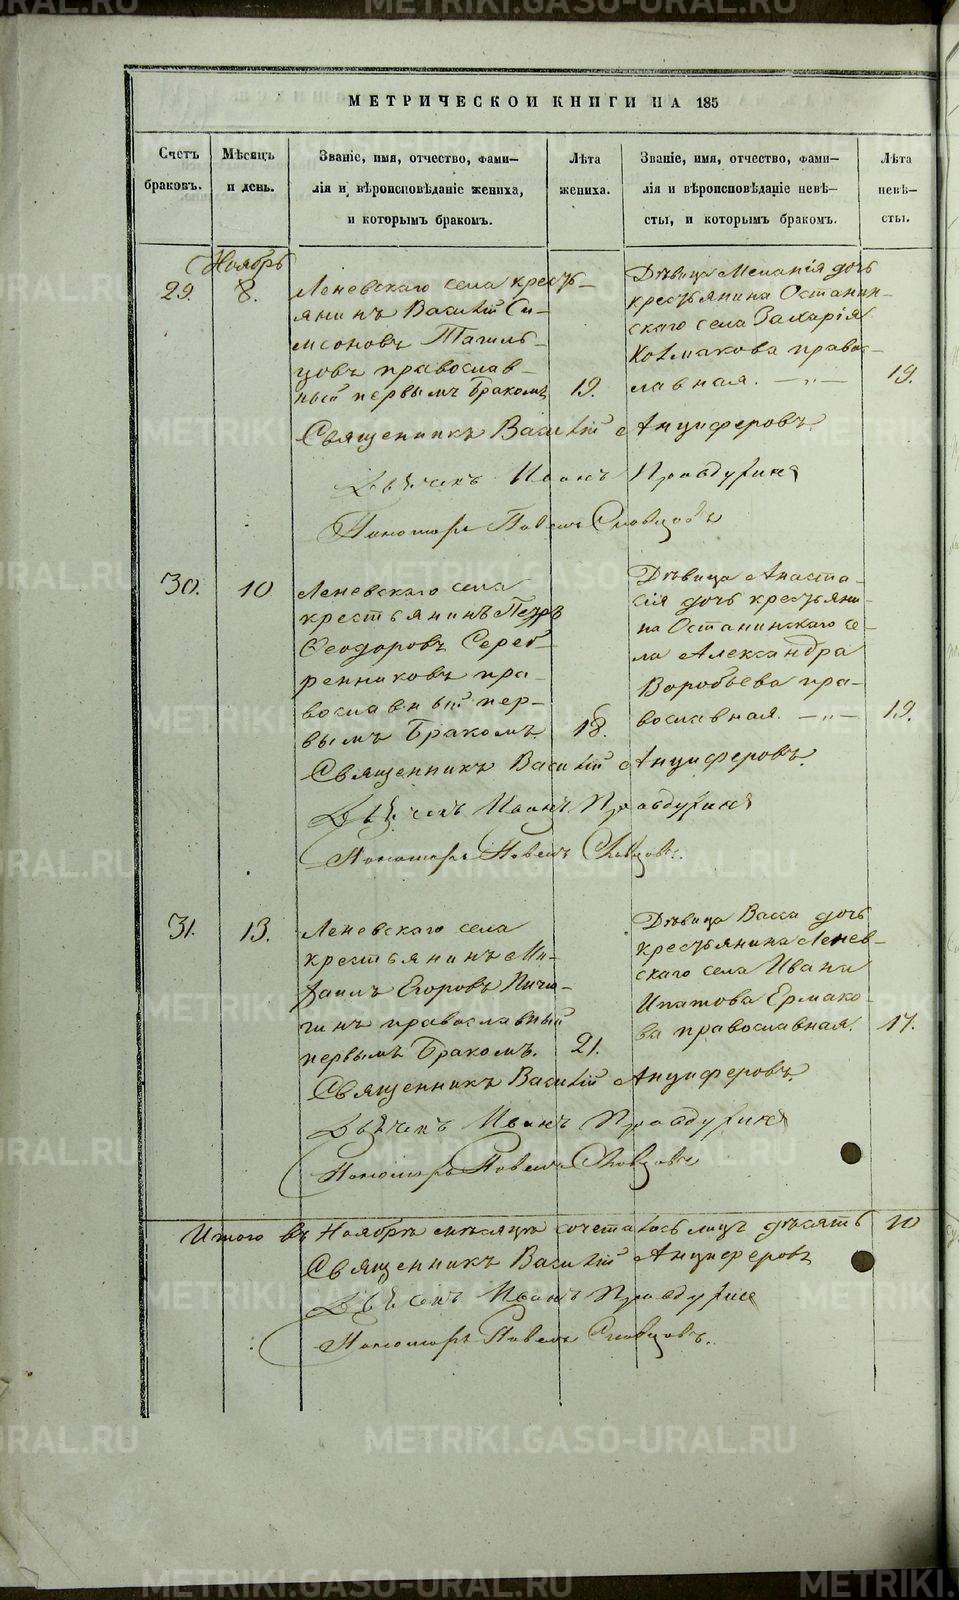 МЕТРИЧЕСКОЙ КНИГИ НА 185
Счетъ браковъ.
Мѣсяцъ и день.
Званіе, имя, отчество, фами-
лія и вѣроисповѣданіе жениха,
и которымъ бракомъ.
Лѣта жениха.
Званіе, имя, отчество, фами-
лія и вѣроисповѣданіе невѣ-
сты, и которымъ бракомъ.
Лѣта невѣ-
сты.
Ноябрь
29. 8.
Леневскаго села кресть-
янинъ Василій Си-
мсоновъ Тагиль-
цовъ православ-
ный первымъ бракомъ
19.
Дѣвица Меланія дочь
крестьянина Останин-
скаго села Захарія
Колмакова правос-
лавная. — „ —
19.
Священникъ Василій Анциферовъ.
Дьячекъ Иванъ Правдухинъ
Пономарь Павелъ Словцовъ
30. 10
Леневскаго села
крестьянинъ Петръ
Ѳеодоровъ Сереб-
ренниковъ пра-
вославный пер-
вымъ бракомъ.
18.
Дѣвица Анаста-
сія дочь крестьяни-
на Останинскаго се-
ла Александра
Воробьева пра-
вославная. — „ —
19.
Священникъ Василій Анциферовъ.
Дьячекъ Иванъ Правдухинъ
Пономарь Павелъ Словцовъ.
31. 13.
Леневскаго села
крестьянинъ Ми-
хаилъ Егоровъ Пичу-
гинъ православный
первымъ бракомъ.
21.
Дѣвица Васса дочь
крестьянина Ленев-
скаго села Ивана
Ипатова Ермако-
ва православная.
17.
Священникъ Василій Анциферовъ.
Дьячекъ Иванъ Правдухинъ
Пономарь Павелъ Словцовъ
Итого въ Ноябрѣ мѣсяцѣ сочеталось лицъ десять 10
Священникъ Василій Анциферовъ
Дьячекъ Иванъ Правдухинъ
Пономарь Павелъ Словцовъ.
METRIKI.GASO-URAL.RU